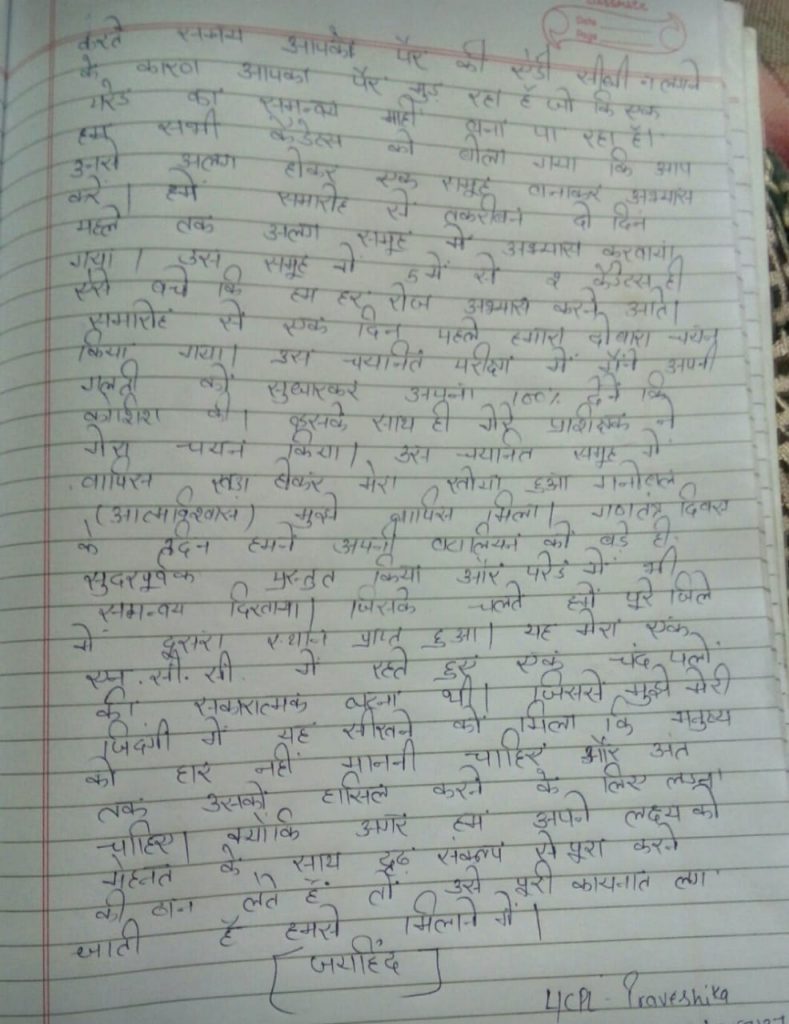 classmate
Date
Page
करते समय आपकी पैर की एडी सीधी न लगने
के कारण आपका पैर मुड़ रहा है जो कि एक
परेड का समन्वय नहीं बना पा रहा है।
हम सभी कैडेट्स को बोला गया कि आप
उनसे अलग होकर एक समूह बनाकर अभ्यास
करे। हमें समारोह से तकरीबन दो दिन
पहले तक अलग समूह में अभ्यास करवाया
गया। उस समूह में 5 में से 2 कैडेट्स ही
ऐसे बचे कि हम हर रोज अभ्यास करने आते।
समारोह से एक दिन पहले हमारा दोबारा चयन
किया गया। उस चयनित परीक्षा में मैंने अपनी
गलती को सुधारकर अपना 100% देने कि
कोशिश की। इसके साथ ही मेरे प्रशिक्षक ने
मेरा चयन किया। उस चयनित समूह में
वापिस खड़ा होकर मेरा खोया हुआ मनोबल
(आत्मविश्वास) मुझे वापिस मिला। गणतंत्र दिवस
के दिन हमने अपनी बटालियन को बड़े ही
सुदरपूर्वक प्रस्तुत किया और परेड में भी
समन्वय दिखाया। जिसके चलते हमें पूरे जिले
में दूसरा स्थान प्राप्त हुआ। यह मेरा एक
एन.सी.सी. में रहते हुए एक चंद पलो
की सकारात्मक घटना थी। जिससे मुझे मेरी
जिंदगी में यह सीखने को मिला कि मनुष्य
को हार नहीं माननी चाहिए और अंत
तक उसको हासिल करने के लिए लड़ना
चाहिए। क्योंकि अगर हम अपने लक्ष्य को
मेहनत के साथ दृढ़ संकल्प से पूरा करने
की ठान लेते हैं तो उसे पूरी कायनात लग
जाती है हमसे मिलाने में।
जयहिंद
Praveshika